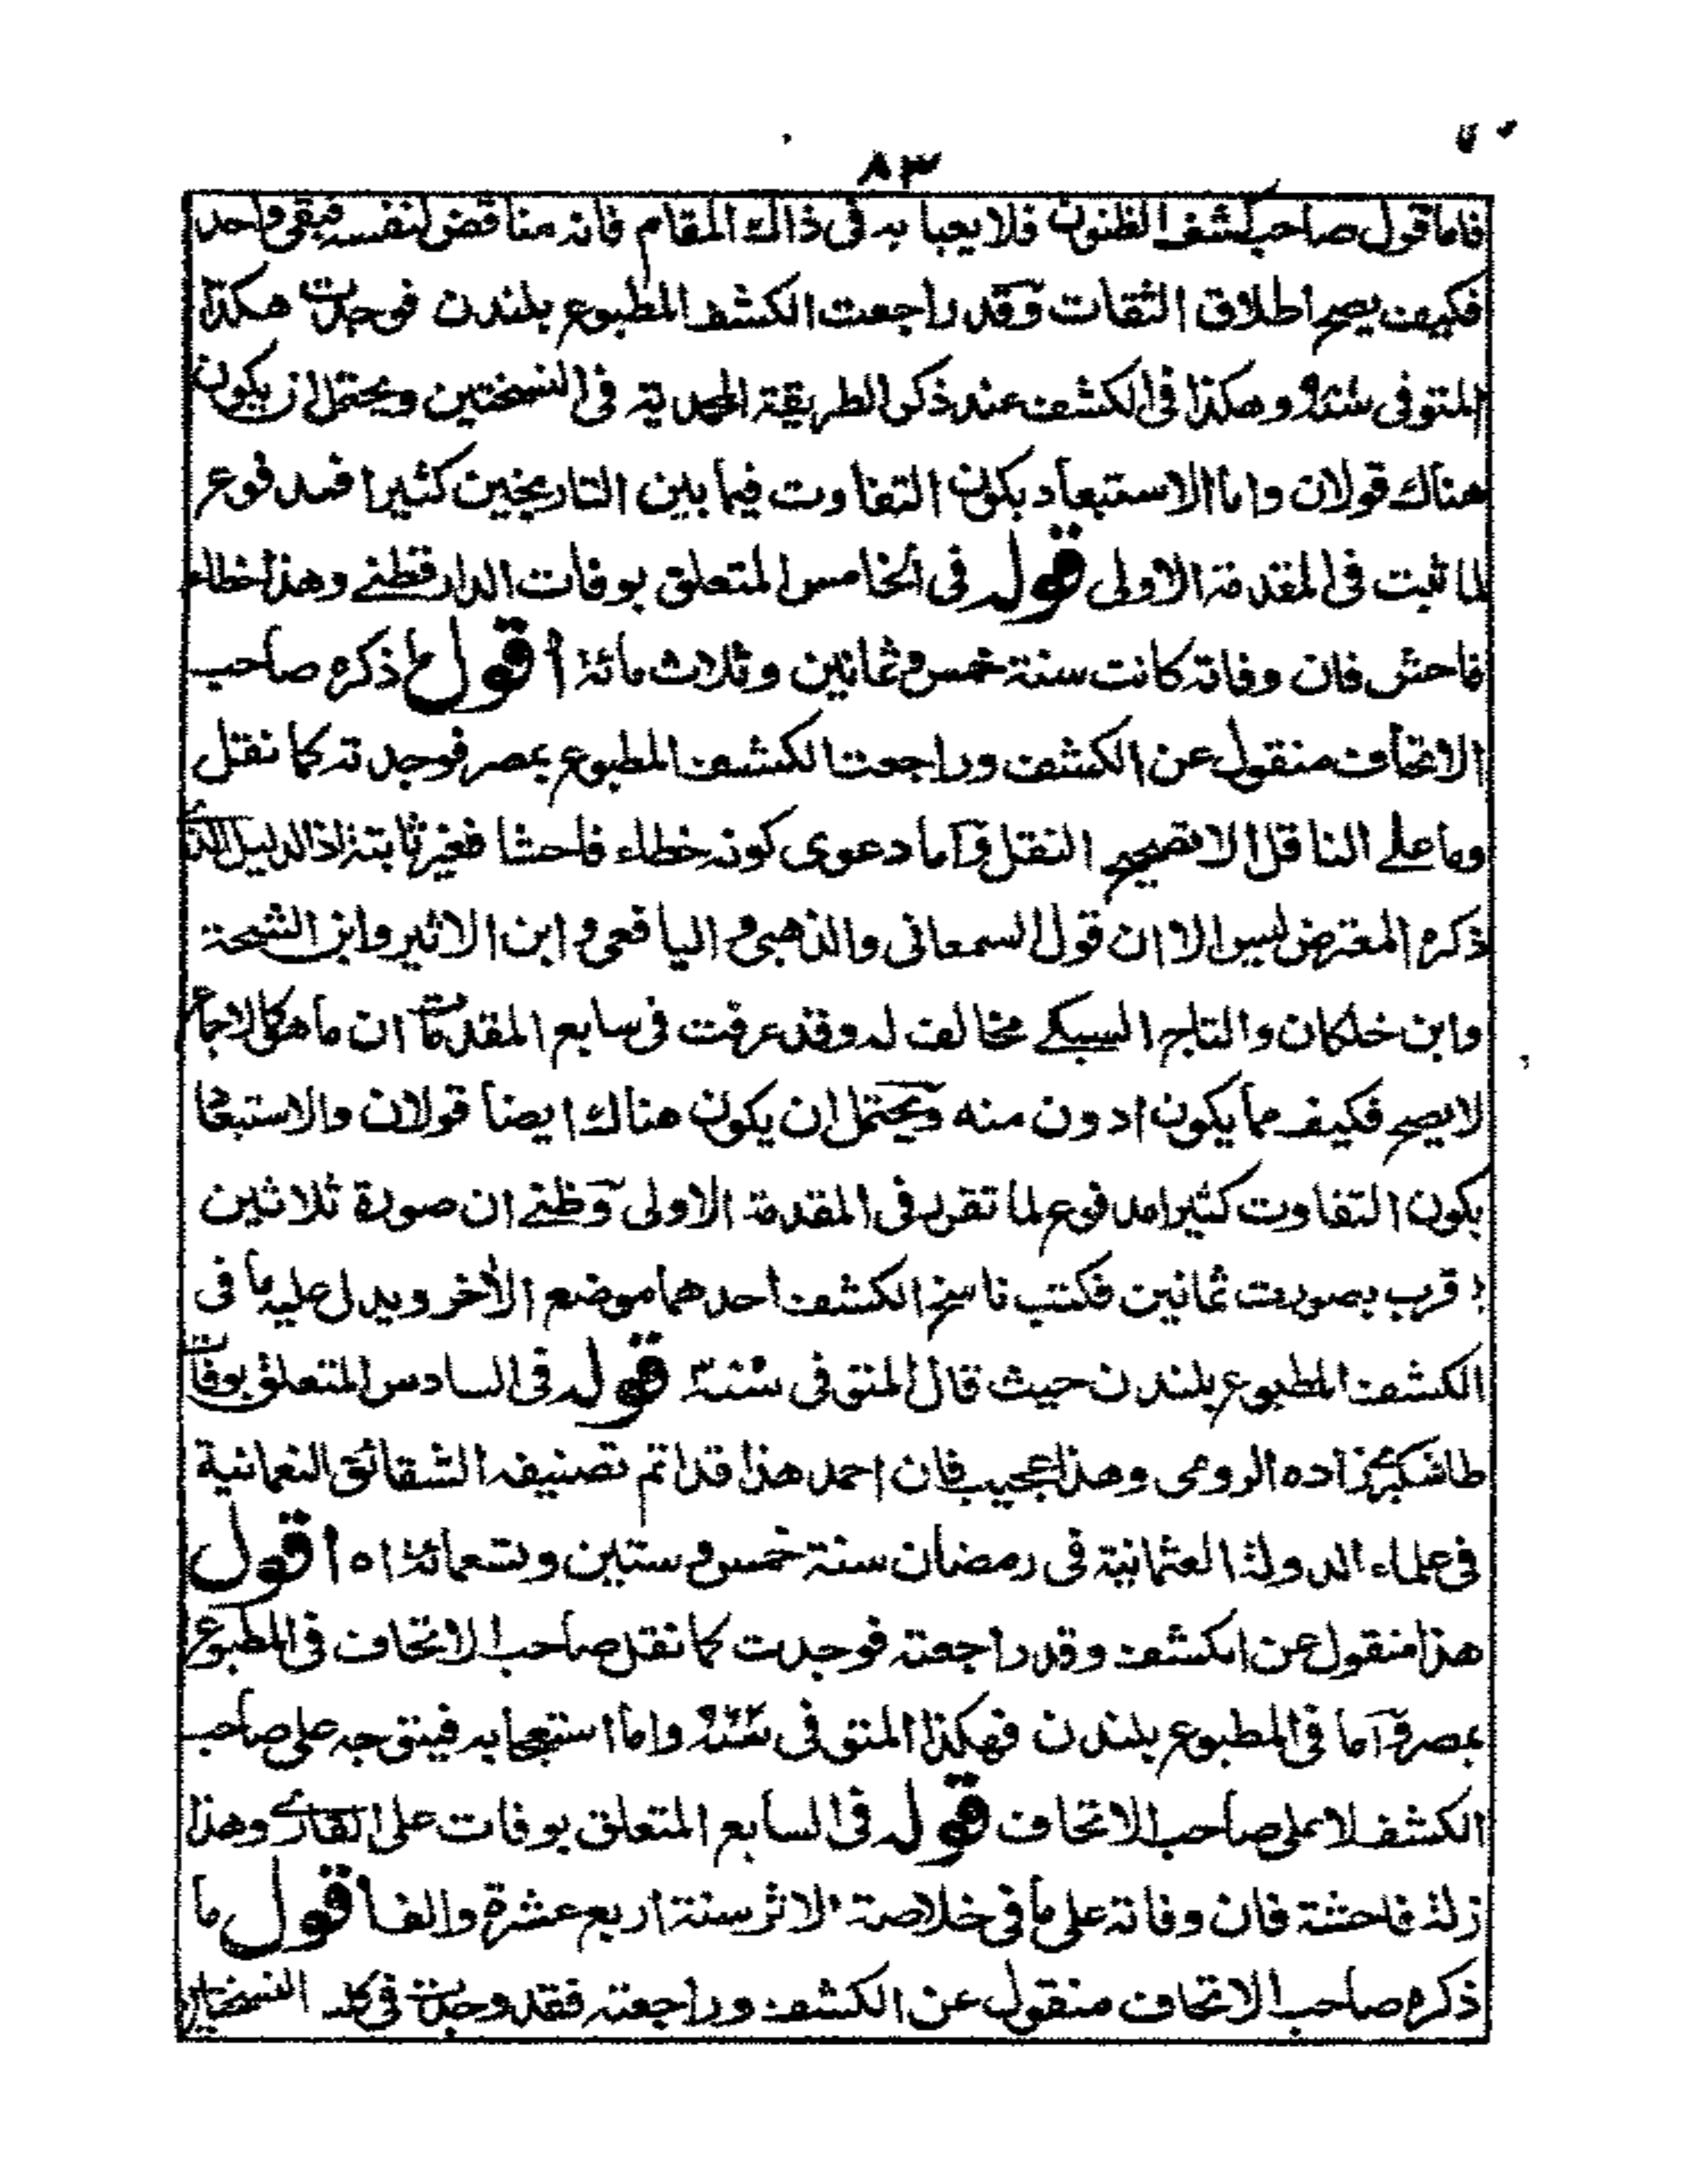 ٨٣
فاما قول صاحب كشف الظنون فلا يعبا به فى ذاك المقام فانه مناقض لنفسه فبقى واحد
فكيف يصح اطلاق الثقات وقد راجعت الكشف المطبوع بلندن فوجدت هكذا
المتوفى سنة وهكذا فى الكشف عند ذكر الطريقة المحمدية فى النسختين ويحتمل ان يكون
هناك قولان واما الاستبعاد بكون التفاوت فيما بين التاريخين كثيرا فمدفوع
لما ثبت فى المقدمة الاولى قوله فى الخامس المتعلق بوفات الدارقطنے وهذا خطاء
فاحش فان وفاته كانت سنة خمس وثمانين وثلاث مائة اقول ما ذكره صاحب
الاتحاف منقول عن الكشف وراجعت الكشف المطبوع بمصر فوجدته كما نقل
وما علے الناقل الا تصحيح النقل واما دعوى كونه خطاء فاحشا فغير ثابتة اذ الدليل الذے
ذكره المعترض ليس الا ان قول السمعانى والذهبى و اليافعى و ابن الاثير وابن الشحنة
وابن خلكان والتاج السبكے مخالف له وقد عرفت فى سابع المقدمات ان ما هو كالاجماع
لا يصح فكيف بما يكون ادون منه ويحتمل ان يكون هناك ايضا قولان والاستبعاد
بكون التفاوت كثيرا مدفوع لما تقرر فى المقدمة الاولى وظنے ان صورة ثلاثين
اقرب بصورت ثمانين فكتب ناسخ الكشف احدهما موضع الأخر ويدل عليه ما فى
الكشف المطبوع بلندن حيث قال المتوفى سنة قوله فى السادس المتعلق بوفات
طاشكبرے زاده الرومى وهذا عجيب فان احمد هذا قد اتم تصنيفه الشقائق النعمانية
فى علماء الدولة العثمانية فى رمضان سنة خمس و ستين و تسعمائة اه اقول
هذا منقول عن الكشف وقد راجعته فوجدت كما نقل صاحب الاتحاف فى المطبوع
بمصر واما فى المطبوع بلندن فهكذا المتوفى سنة واما استعجابه فيتوجه على صاحب
الكشف لا على صاحب الاتحاف قوله فى السابع المتعلق بوفات على القارے وهذا
زلة فاحشة فان وفاته على ما فى خلاصة الاثر سنة اربع عشرة والف اقول ما
ذكره صاحب الاتحاف منقول عن الكشف وراجعته فقد وجدت فى كلا النسختين